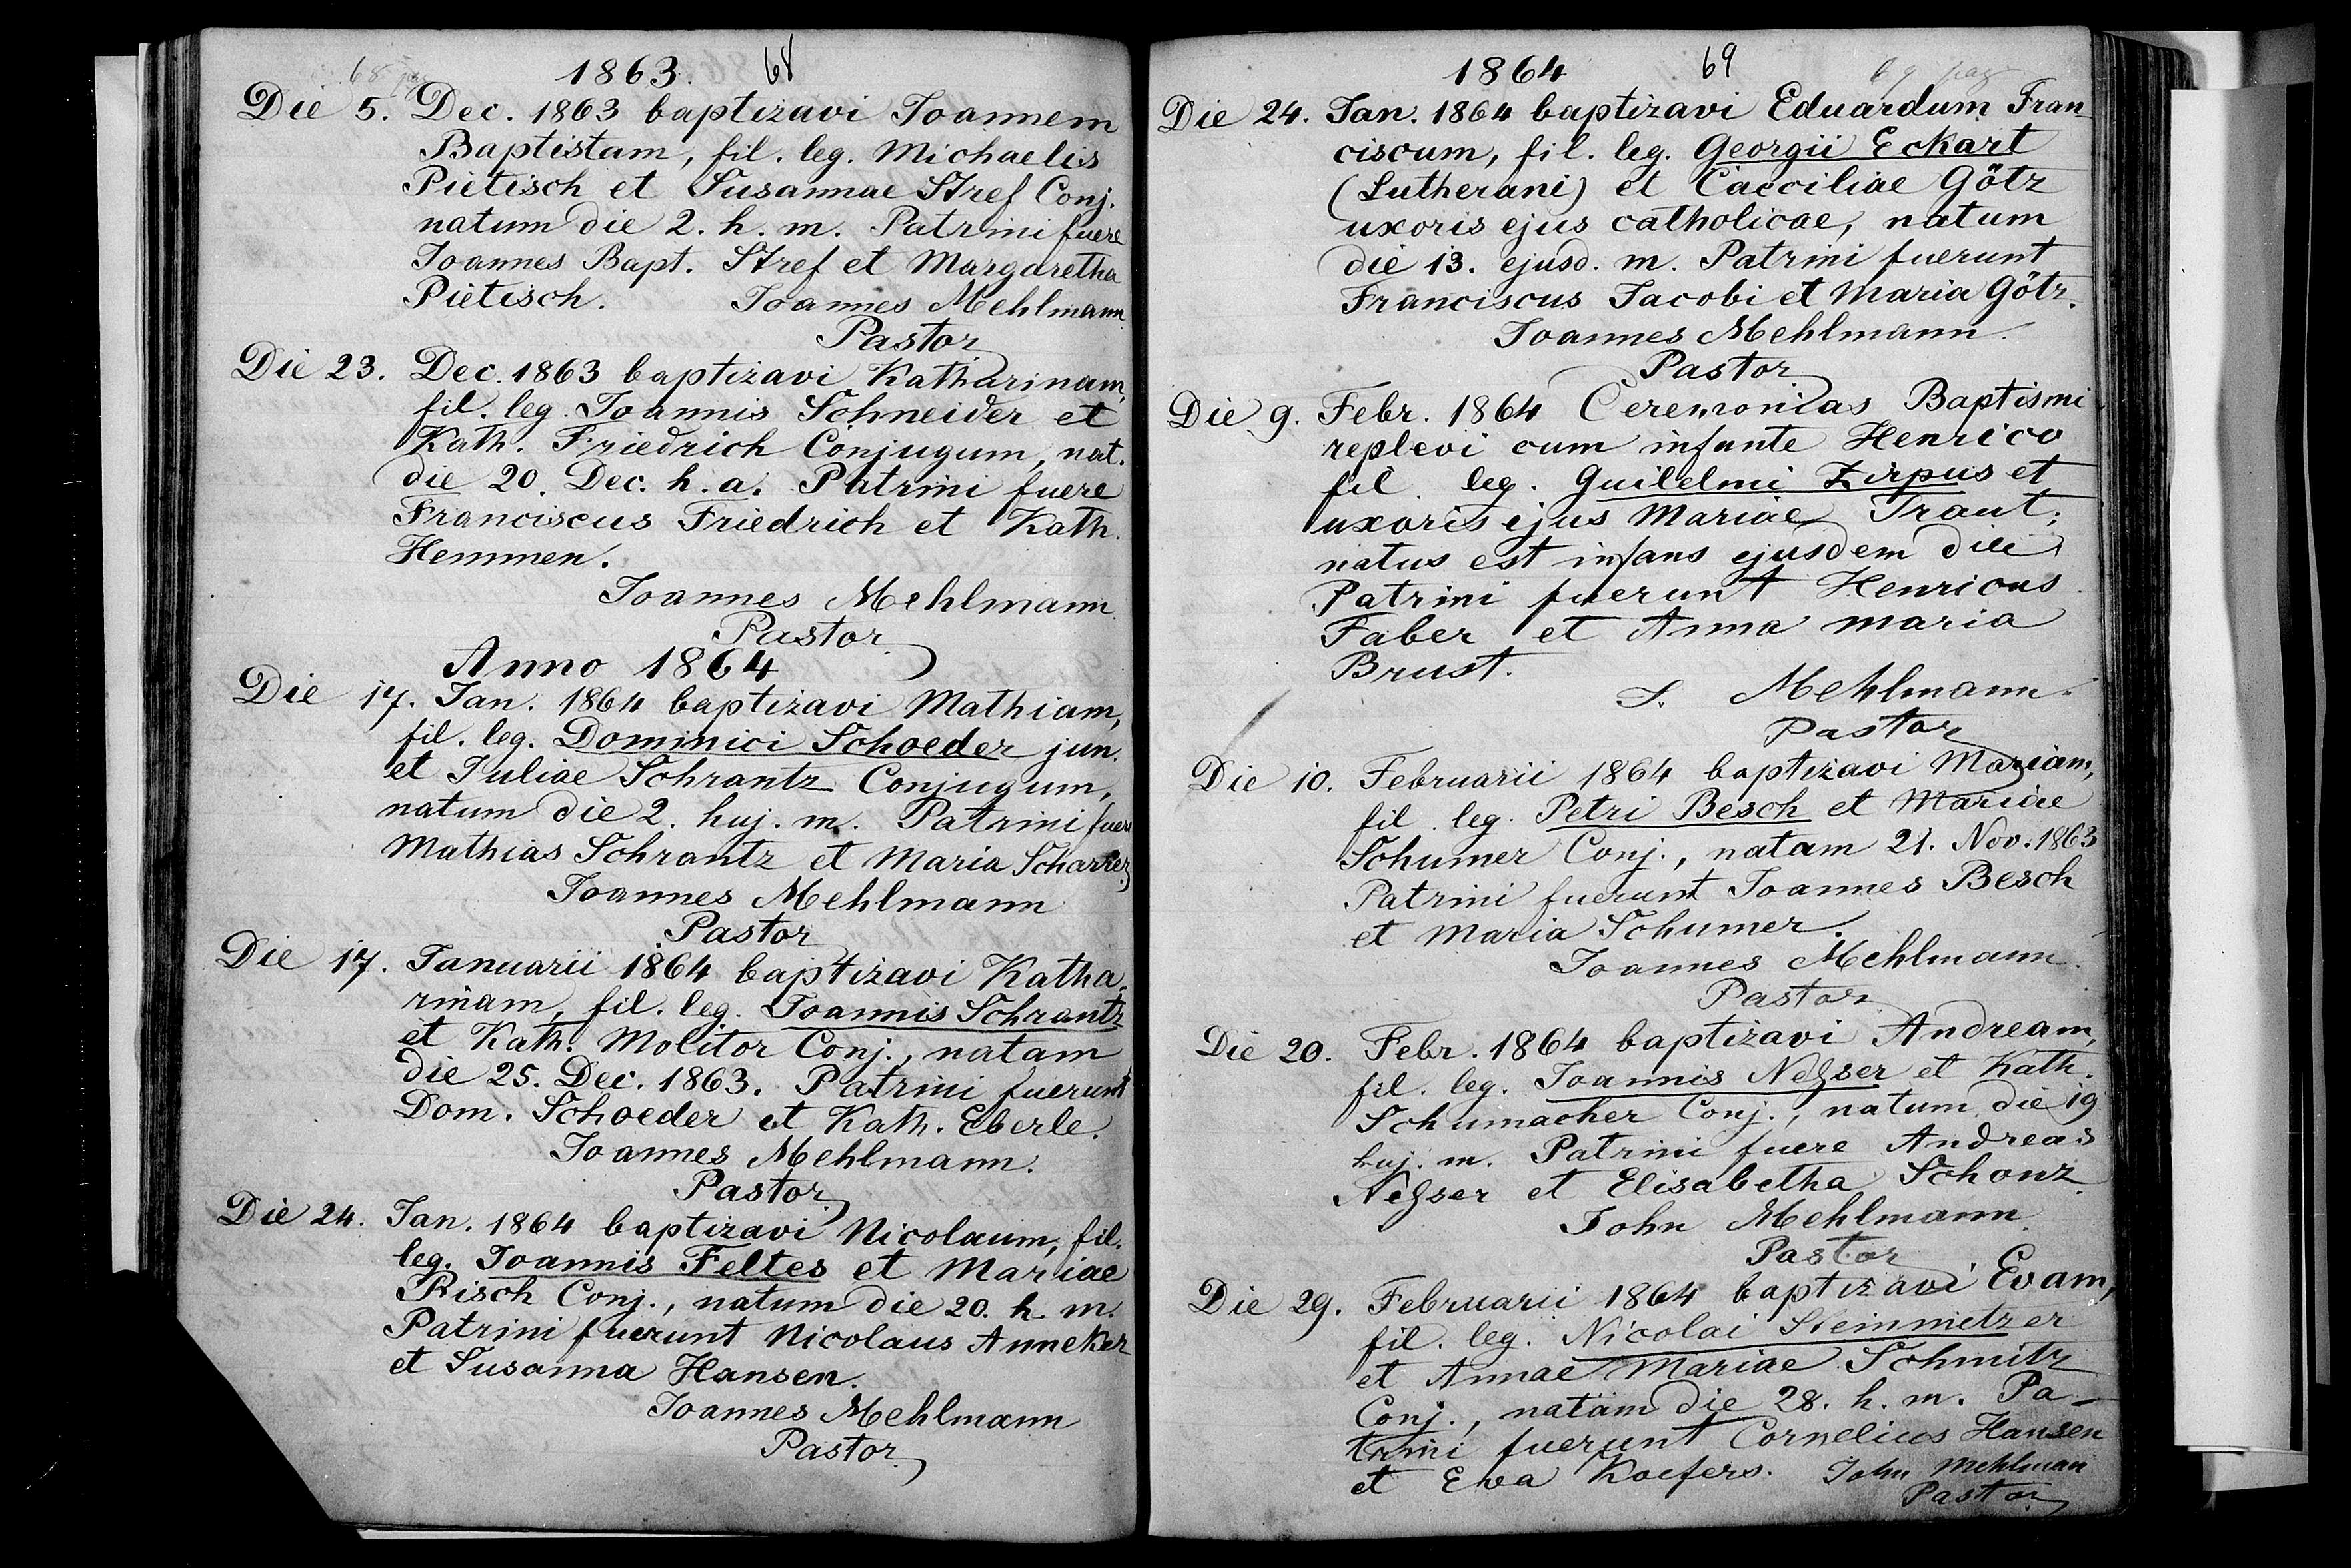 68 pag
1863. 68
Die 5. Dec. 1863 baptizavi Joannem
Baptistam, fil. leg. Michaelis
Pietisch et Susannae Stref Conj.
natum die 2. h. m. Patrini fuere
Joannes Bapt. Stref et Margaretha
Pietisch. Joannes Mehlmann
Pastor
Die 23. Dec. 1863 baptizavi Katharinam,
fil. leg. Joannis Schneider et
Kath. Friedrich Conjugum, nat.
die 20. Dec. h. a. Patrini fuere
Franciscus Friedrich et Kath.
Hemmen.
Joannes Mehlmann
Pastor
Anno 1864
Die 17. Jan. 1864 baptizavi Mathiam,
fil. leg. Dominici Schoeder jun.
et Juliae Schrantz Conjugum,
natum die 2. huj. m. Patrini fuere
Mathias Schrantz et Maria
Joannes Mehlmann
Pastor
Die 17. Januarii 1864 baptizavi Katha-
rinam, fil. leg. Joannis Schrantz
et Kath. Molitor Conj., natam
die 25. Dec. 1863. Patrini fuerunt
Dom. Schoeder et Kath. Eberle.
Joannes Mehlmann.
Pastor
Die 24. Jan. 1864 baptizavi Nicolaum, fil.
leg. Joannis Feltes et Mariae
Risch Conj., natum die 20. h. m.
Patrini fuerunt Nicolaus Anneker
et Susanna Hansen.
Joannes Mehlmann
Pastor
1864 69
69 pag
Die 24. Jan. 1864 baptizavi Eduardum Fran
ciscum, fil. leg. Georgii Eckart
(Lutherani) et Caeciliae Götz
uxoris ejus catholicae, natum
die 13. ejusd. m. Patrini fuerunt
Franciscus Jacobi et Maria Götz.
Joannes Mehlmann.
Pastor
Die 9. Febr. 1864 Ceremonias Baptismi
replevi cum infante Henrico
fil. leg. Guilelmi Zirpus et
uxoris ejus Mariae Traut;
natus est infans ejusdem diei
Patrini fuerunt Henricus
Faber et Anna Maria
Brust.
J. Mehlmann.
Pastor
Die 10. Februarii 1864 baptizavi Mariam,
fil. leg. Petri Besch et Mariae
Schumer Conj., natam 21. Nov. 1863
Patrini fuerunt Joannes Besch
et Maria Schumer.
Joannes Mehlmann.
Pastor
Die 20. Febr. 1864 baptizavi Andream,
fil. leg. Joannis Neßser et Kath.
Schumacher Conj., natum die 19
huj. m. Patrini fuere Andreas
Neßser et Elisabetha Schonz.
John Mehlmann
Pastor
Die 29. Februarii 1864 baptizavi Evam,
fil. leg. Nicolai Steinmetzer
et Annae Mariae Schmitz
Conj., natam die 28. h. m. Pa-
trini fuerunt Cornelius Hansen
et Eva Koefers. John Mehlman
Pastor